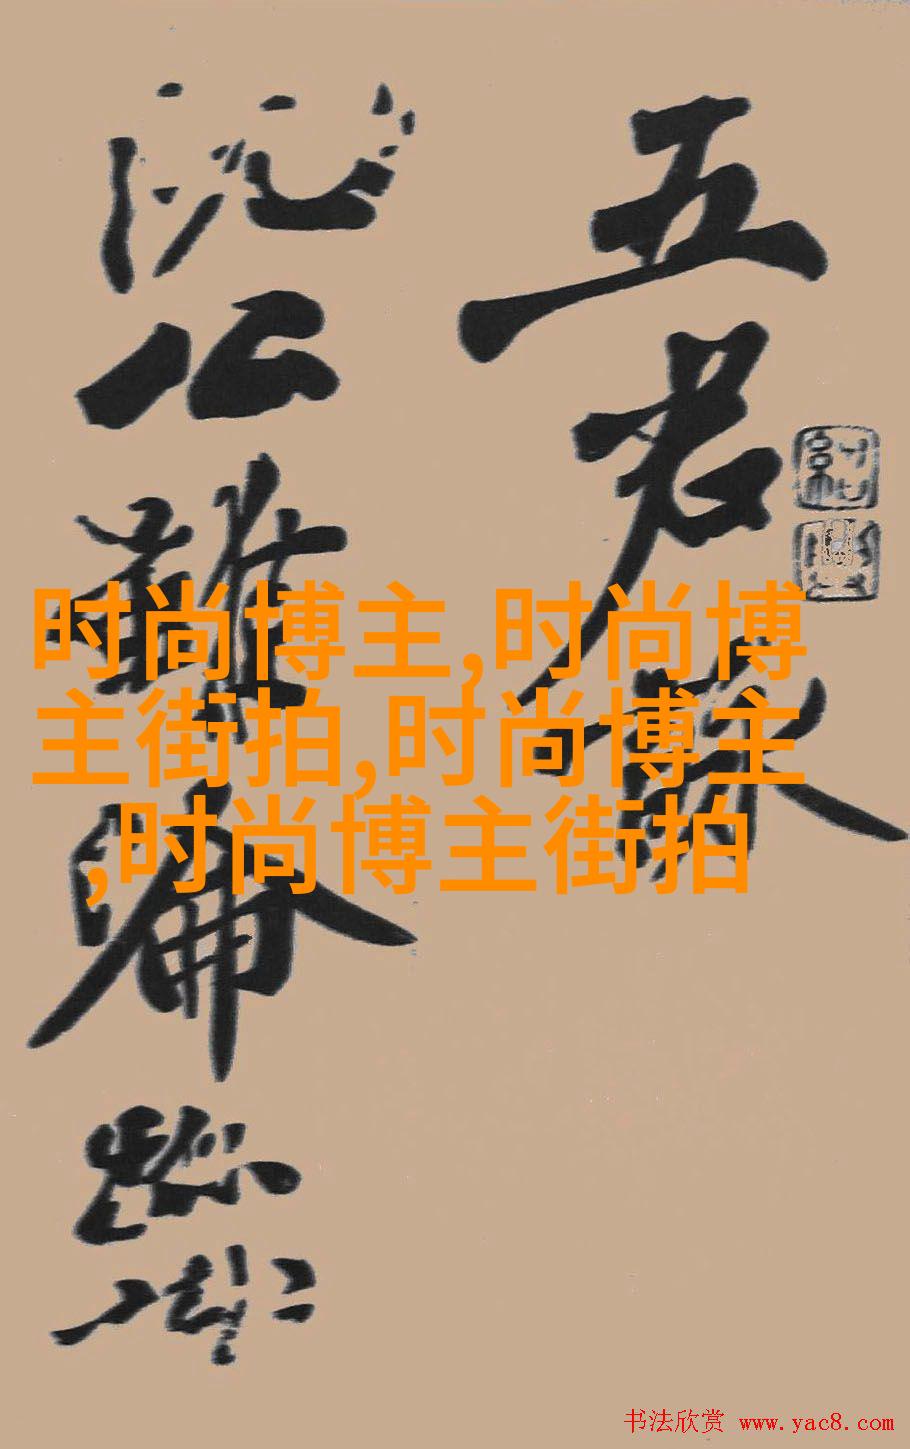 五君詠
阮公雖淪跡
时尚博主,时尚博
主街拍,时尚博主
,时尚博主街拍
书法欣赏 www.yac8.com